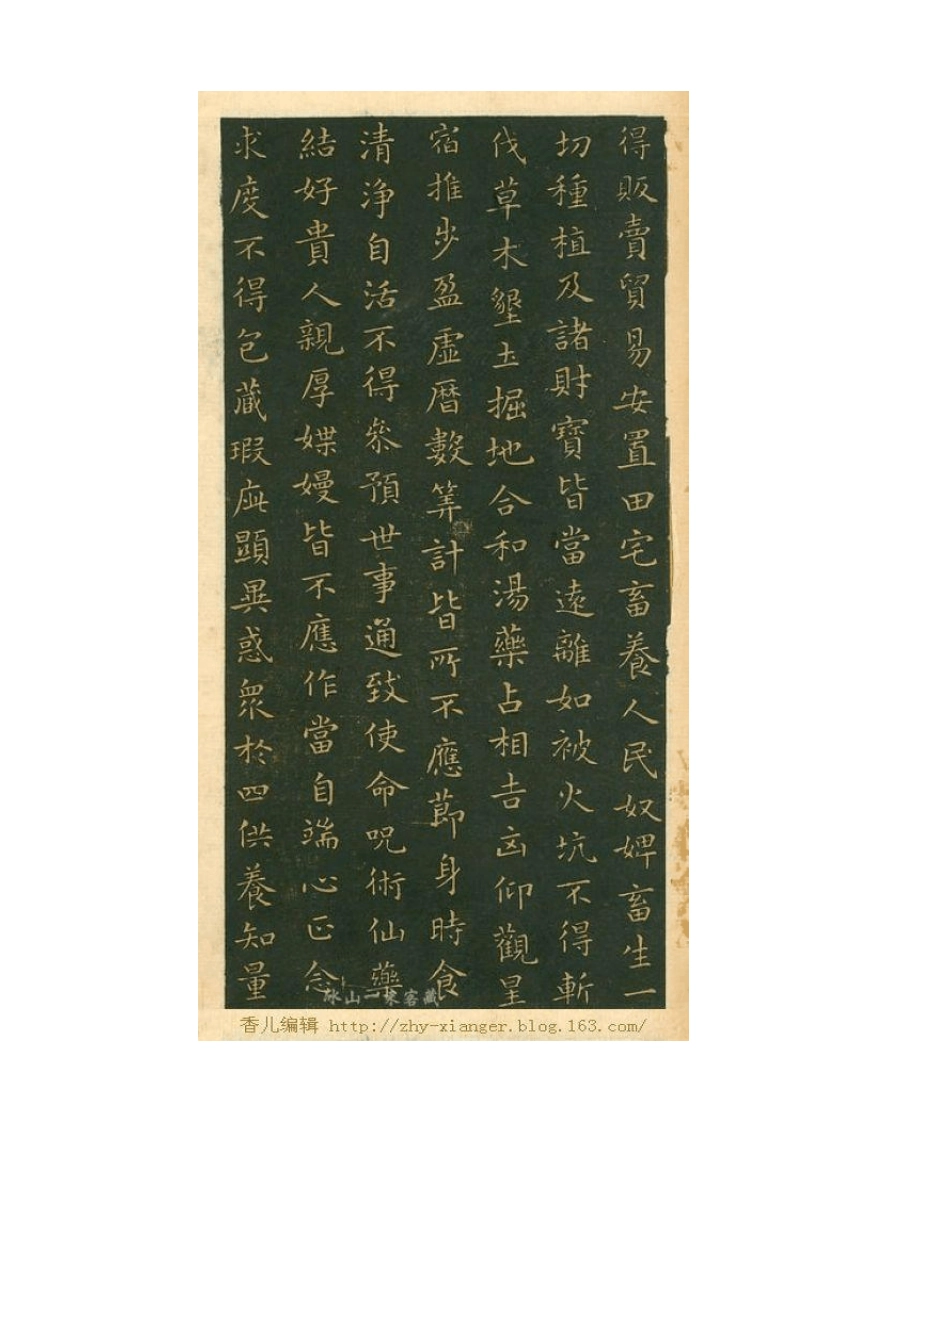 得販賣貿易安置田宅畜養人民奴婢畜生一
切種植及諸財寶皆當遠離如被火坑不得斬
伐草木墾土掘地合和湯藥占相吉凶仰觀星
宿推步盈虛曆數筭計皆所不應節身時食
清淨自活不得參預世事通致使命呪術仙藥
結好貴人親厚媟嫚皆不應作當自端心正念
求度不得包藏瑕疵顯異惑衆於四供養知量
冰山一味客藏
香儿编辑 http://zhy-xianger.blog.163.com/